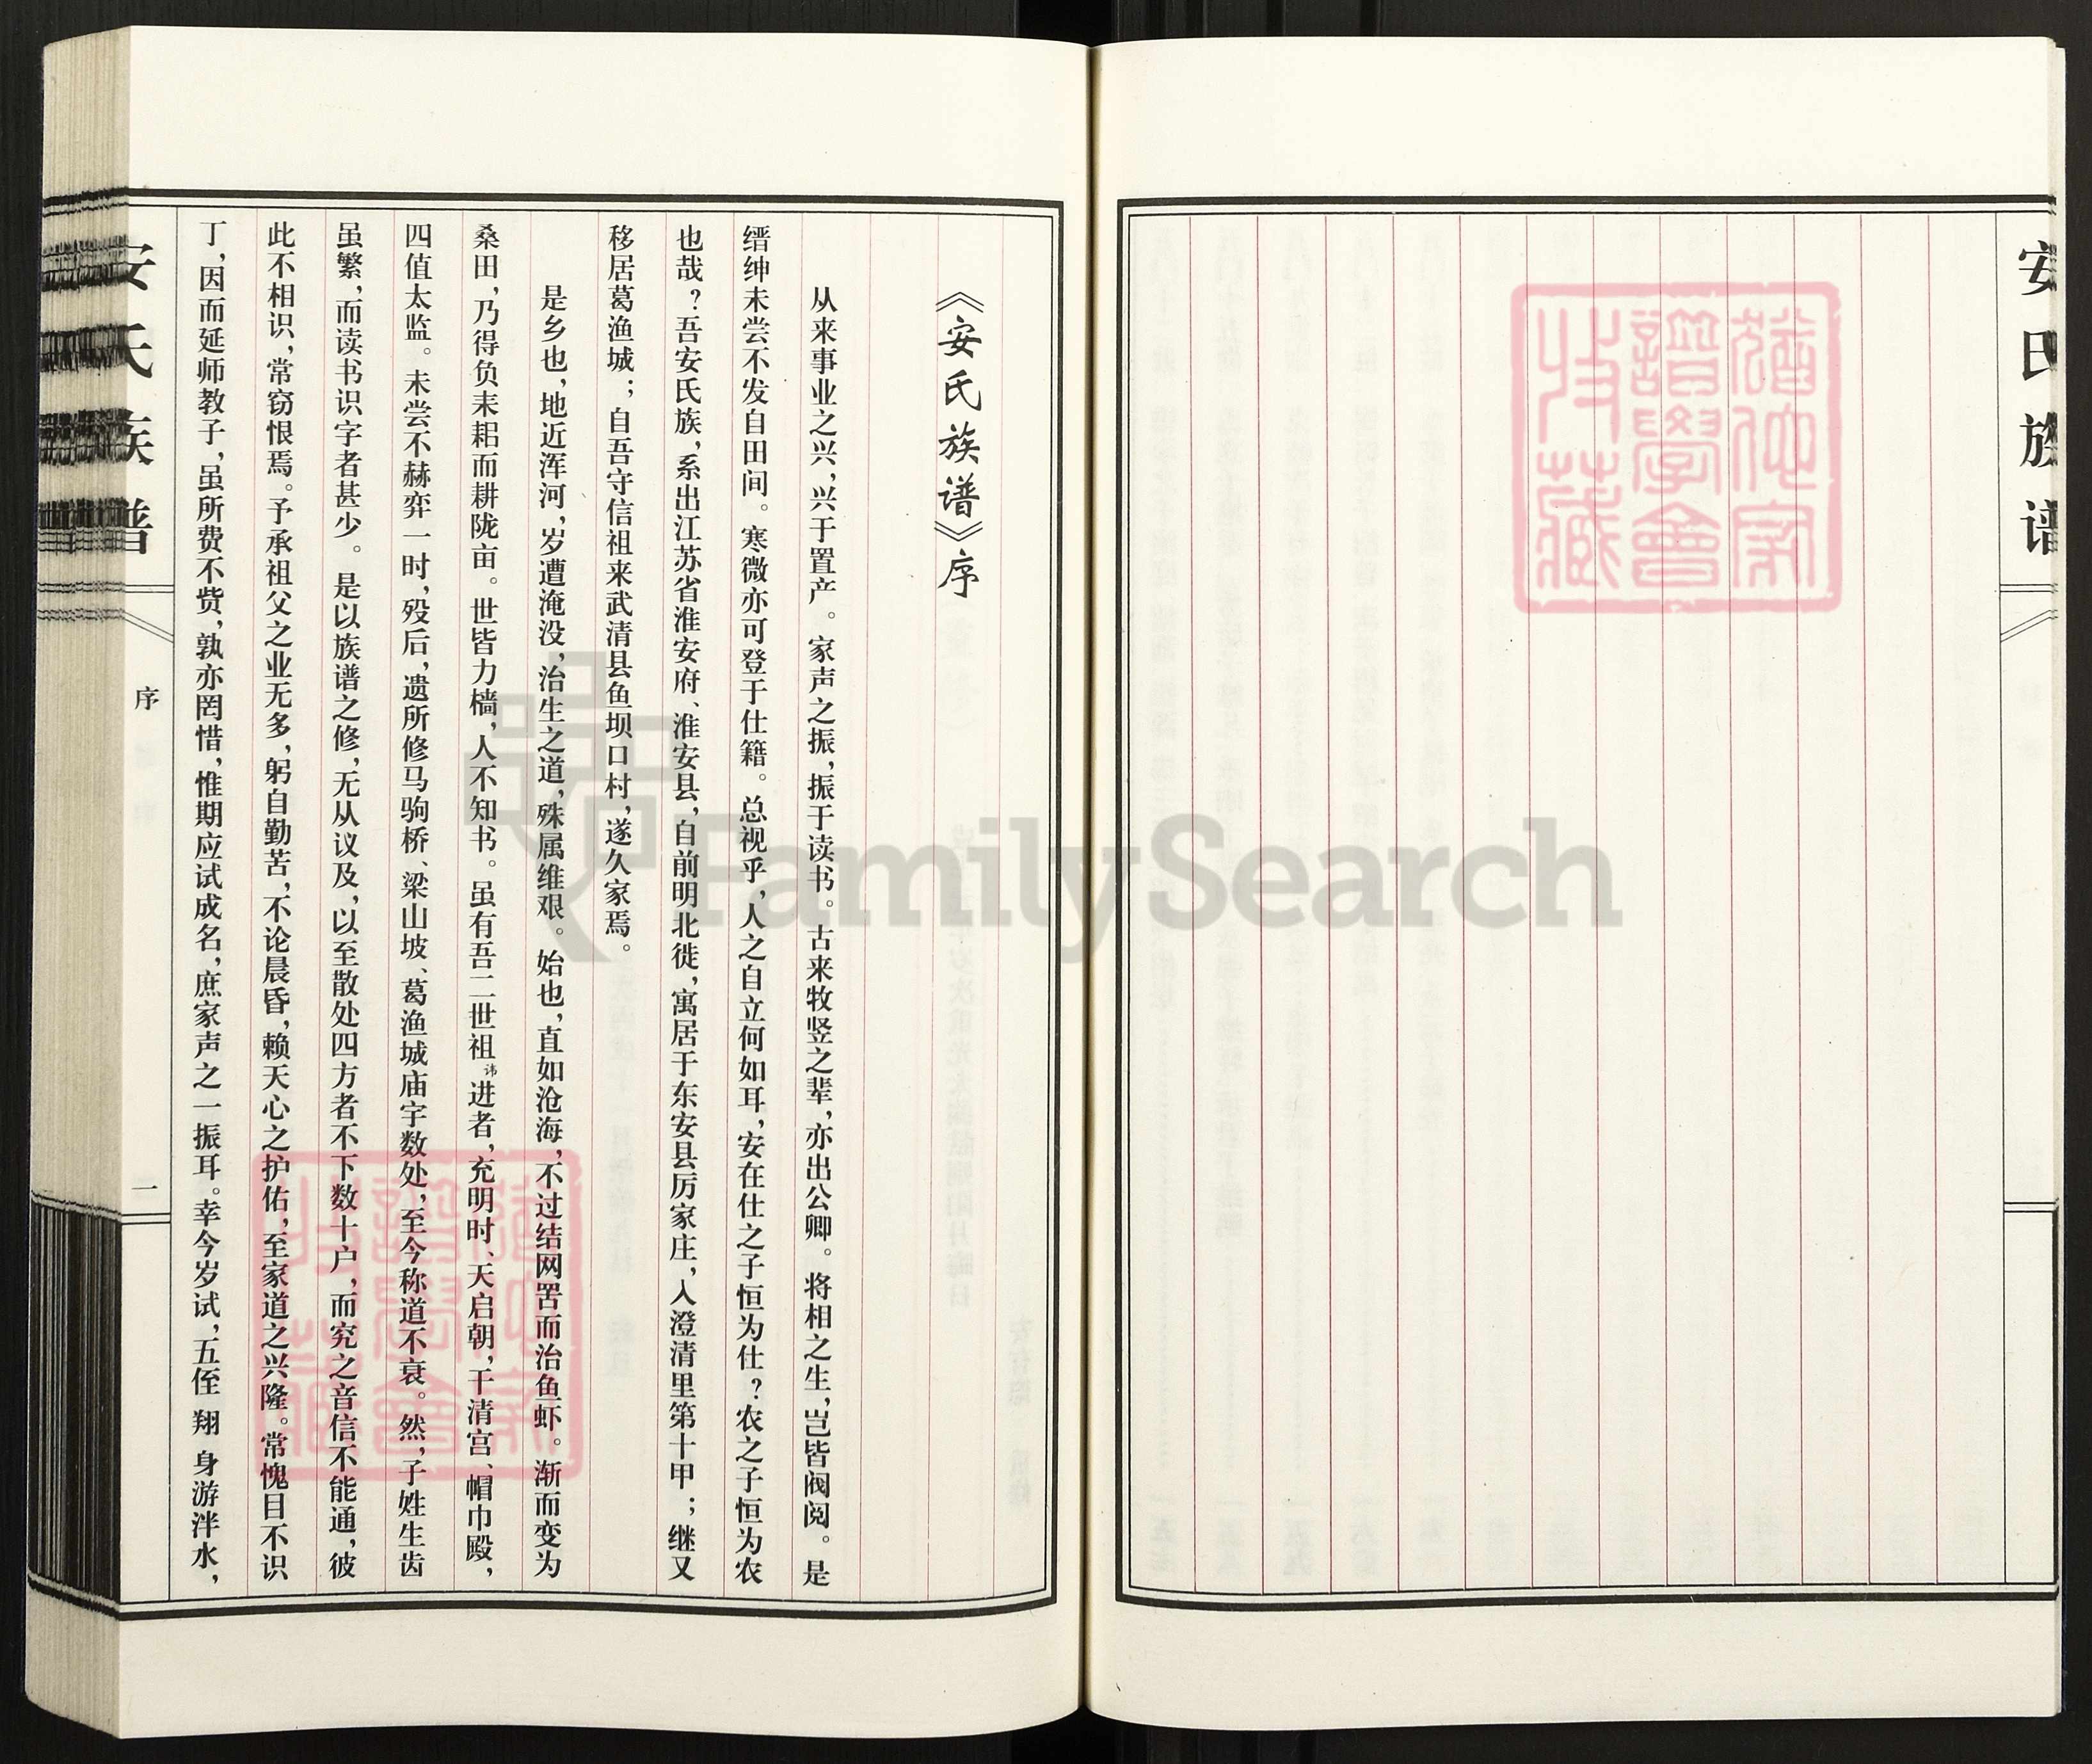 安氏族谱
《安氏族谱》序
从来事业之兴，兴于置产。家声之振，振于读书。古来牧竖之辈，亦出公卿。将相之生，岂皆阀阅。是
缙绅未尝不发自田间。寒微亦可登于仕籍。总视乎，人之自立何如耳，安在仕之子恒为仕？农之子恒为农
也哉？吾安氏族，系出江苏省淮安府、淮安县，自前明北徙，寓居于东安县厉家庄，入澄清里第十甲；继又
移居葛渔城；自吾守信祖来武清县鱼坝口村，遂久家焉。
是乡也，地近浑河，岁遭淹没，治生之道，殊属维艰。始也，直如沧海，不过结网罟而治鱼虾。渐而变为
桑田，乃得负耒耜而耕陇亩。世皆力穑，人不知书。虽有吾二世祖讳进者，充明时、天启朝，干清宫、帽巾殿，
四值太监。未尝不赫弈一时，殁后，遗所修马驹桥、梁山坡、葛渔城庙宇数处，至今称道不衰。然，子姓生齿
虽繁，而读书识字者甚少。是以族谱之修，无从议及，以至散处四方者不下数十户，而究之音信不能通，彼
此不相识，常窃恨焉。予承祖父之业无多，躬自勤苦，不论晨昏，赖天心之护佑，至家道之兴隆。常愧目不识
丁，因而延师教子，虽所费不赀，孰亦罔惜，惟期应试成名，庶家声之一振耳。幸今岁试，五侄 翔 身游泮水，
安氏族谱
序
一
FamilySearch